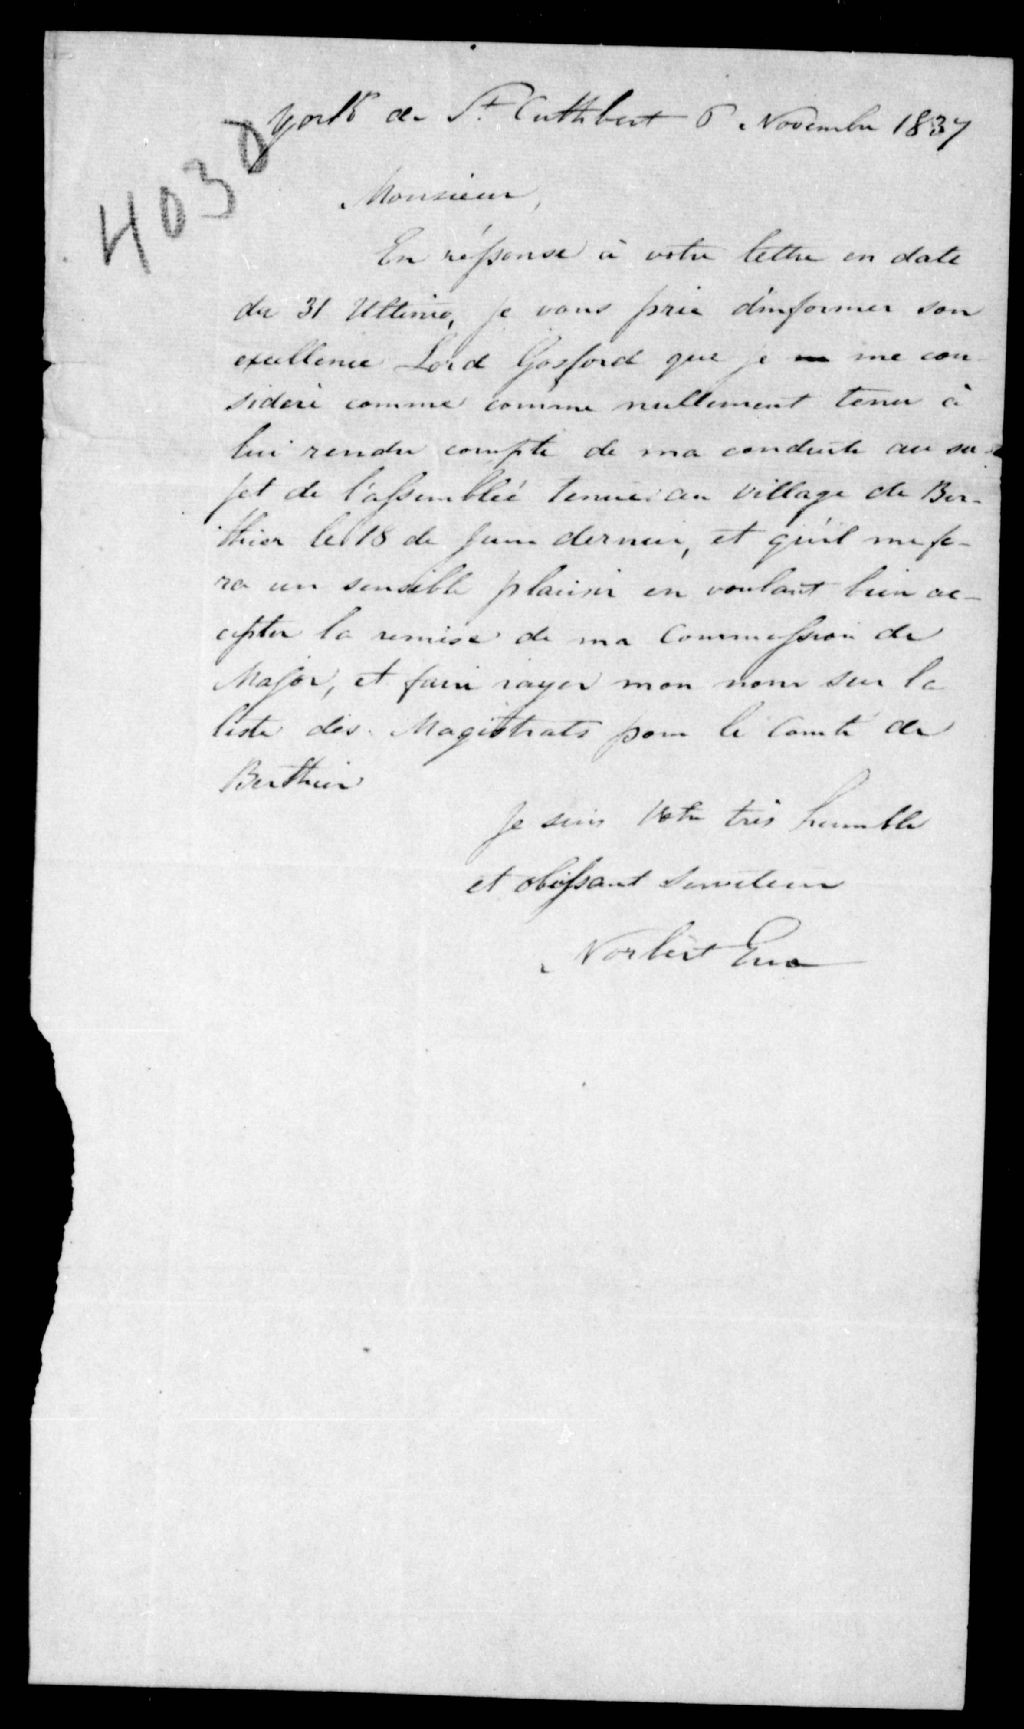 York de St. Cuthbert 6 Novembre 1837
4030
Monsieur,
En réponse à votre lettre en date
du 31 Ultimo, je vous prie d'informer son
excellence Lord Gosford que je me con-
sidère comme comme nullement tenu à
lui rendre compte de ma conduite au su-
jet de l'assemblée tenue au village de Ber-
thier le 18 de Juin dernier, et qu'il me fe-
ra un sensible plaisir en voulant bien ac-
cepter la remise de ma Commission de
Major, et faire rayer mon nom sur la
liste des Magistrats pour le Comté de
Berthier
Je suis Votre très humble
et obéissant serviteur
Norbert Eno